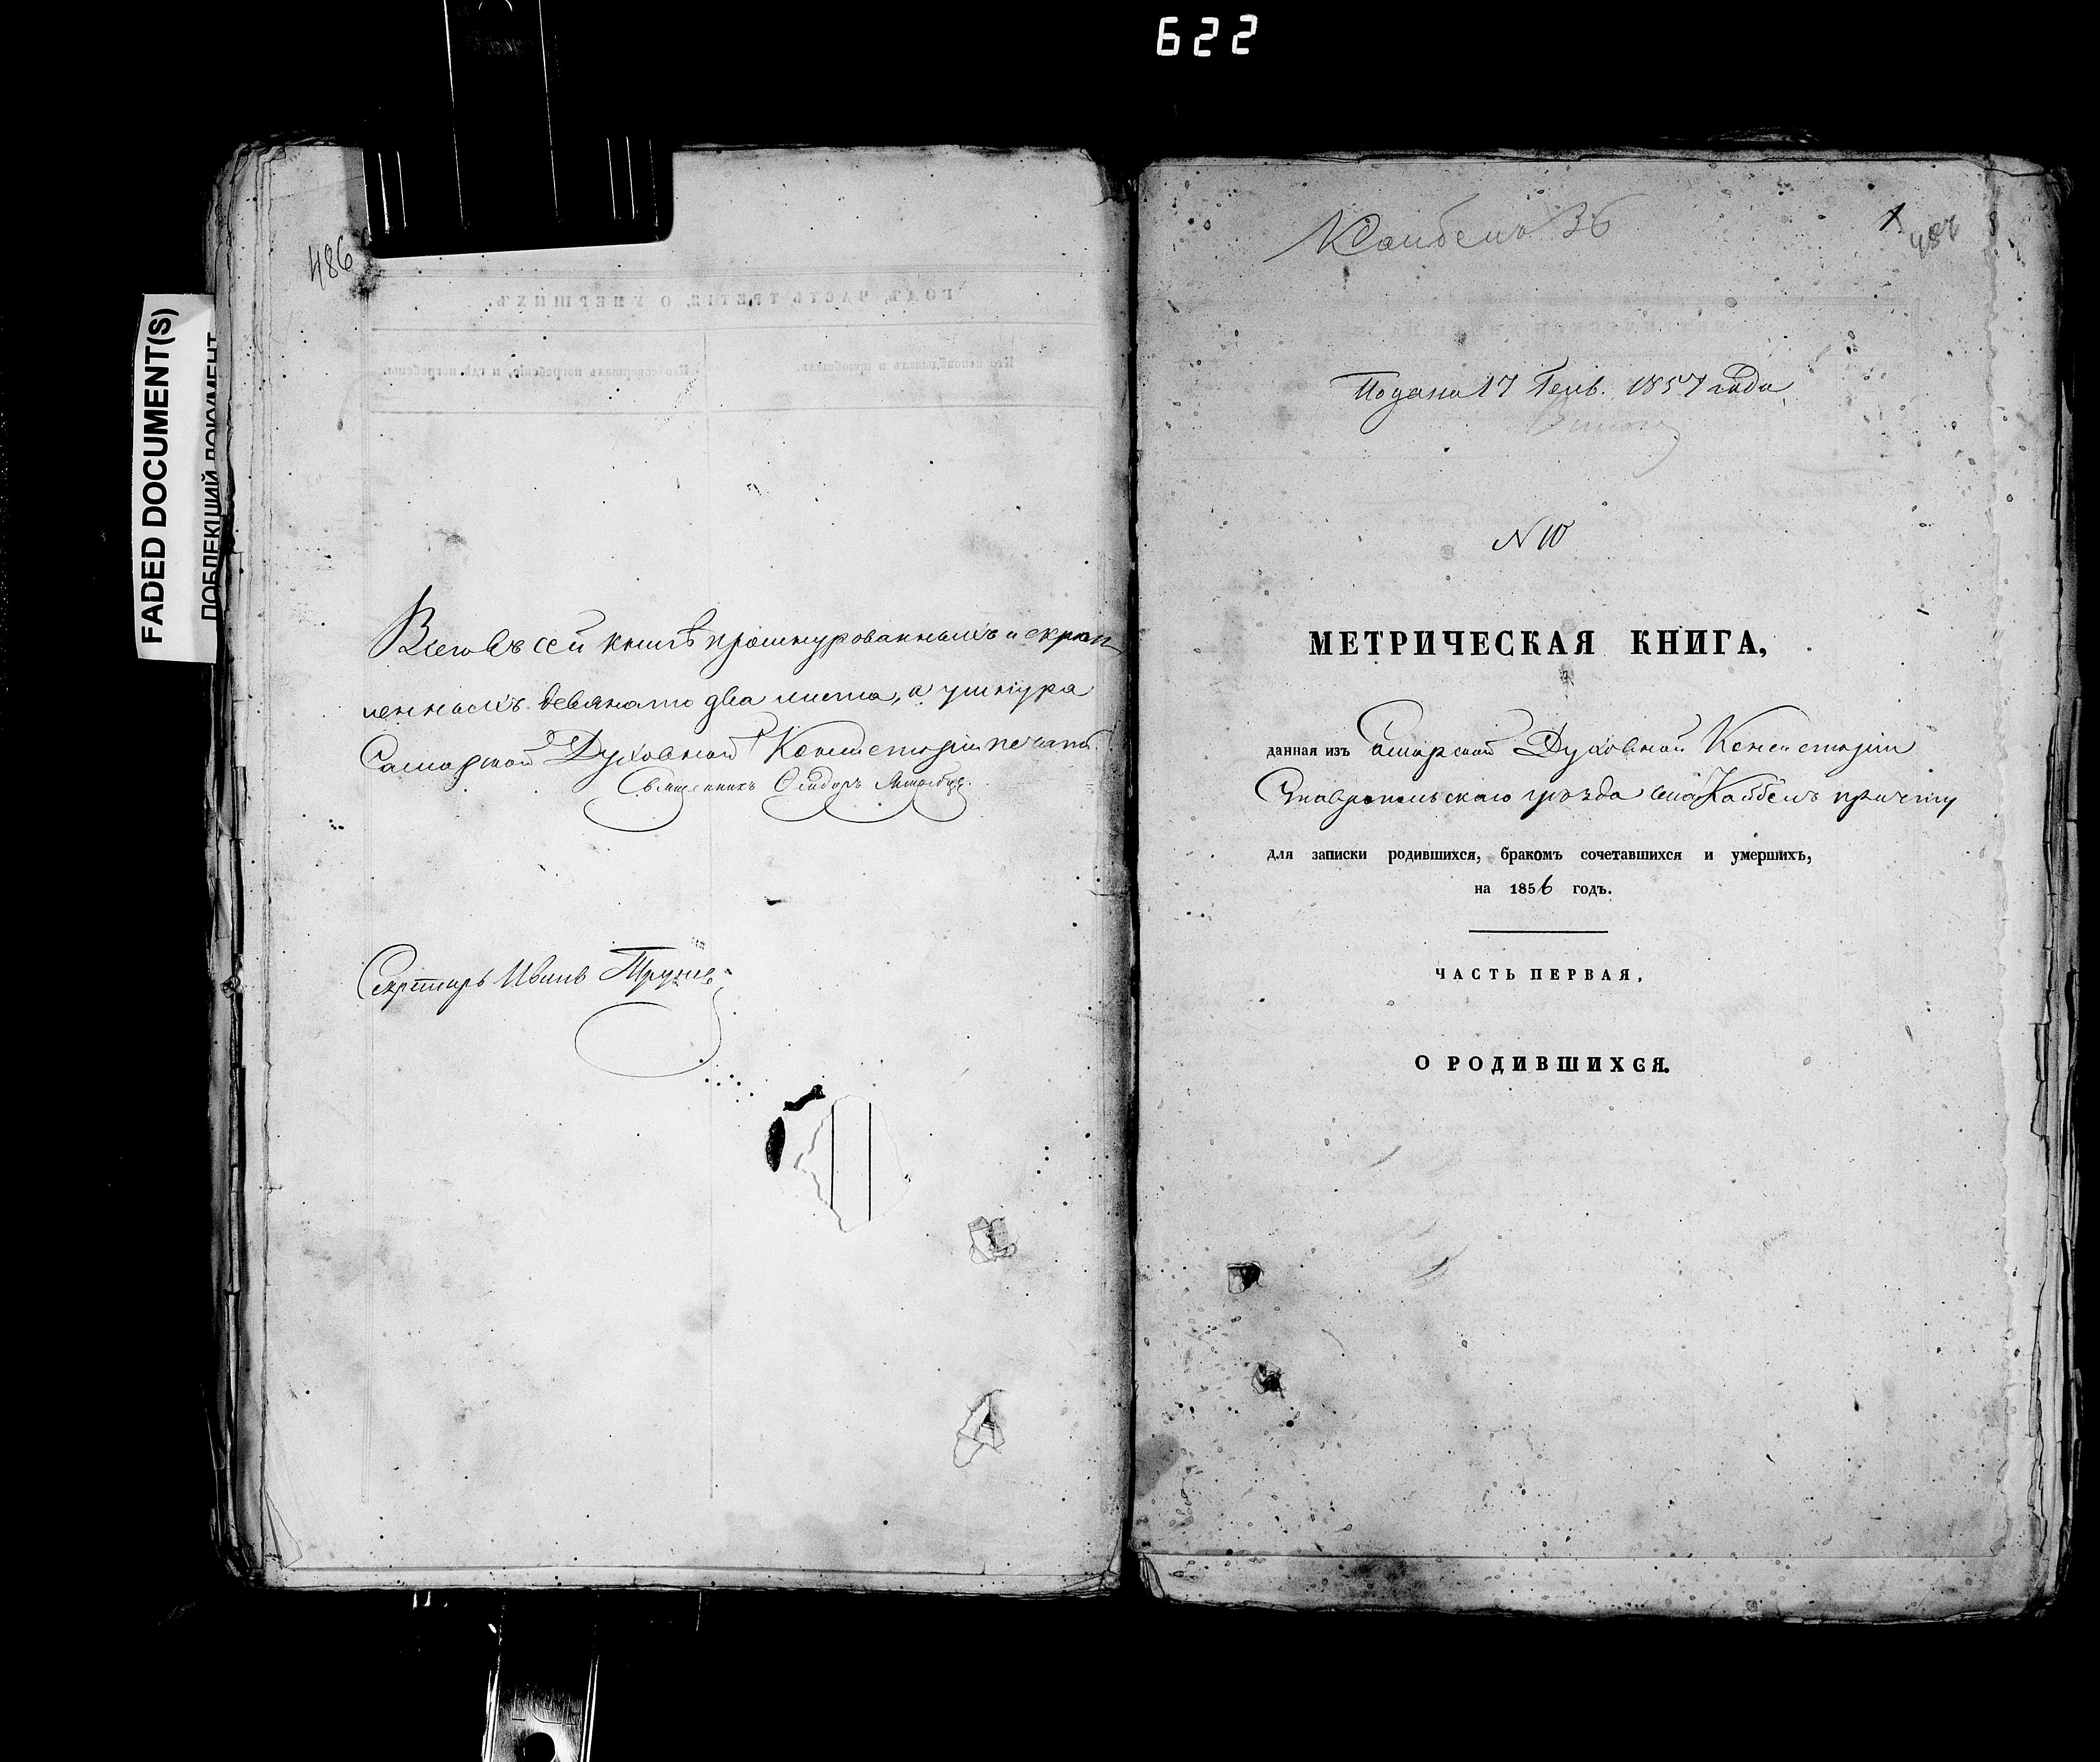 622
FADED DOCUMENT(S)
ПОБЛЕКШИЙ ДОКУМЕНТ
486
ГОДЪ, ЧАСТЬ ТРЕТІЯ, О УМЕРШИХЪ.
Кто исповѣдывалъ и пріобщалъ.
Кто совершалъ погребеніе, и гдѣ погребены.
Всего въ сей книгѣ прошнурованныхъ и скреп
ленныхъ девяносто два листа, а у шнура
Самарской Духовной Консисторіи печать.
Священникъ
Секретарь Иванъ
Кайбелы 36
1
487
Подана 17 Генв. 1857 года
N 10
МЕТРИЧЕСКАЯ КНИГА,
данная изъ Самарской Духовной Консисторіи
Ставропольскаго уѣзда села Кайбелъ причту
для записки родившихся, бракомъ сочетавшихся и умершихъ,
на 1856 годъ.
ЧАСТЬ ПЕРВАЯ,
О РОДИВШИХСЯ.